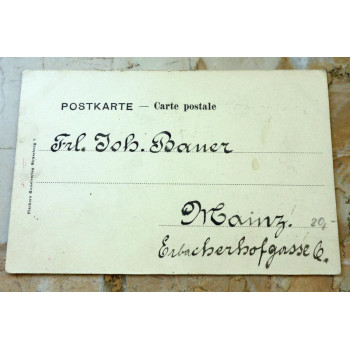 POSTKARTE — Carte postale
Frl. Joh. Bauer
Mainz.
20,-
Erbacherhofgasse 6.